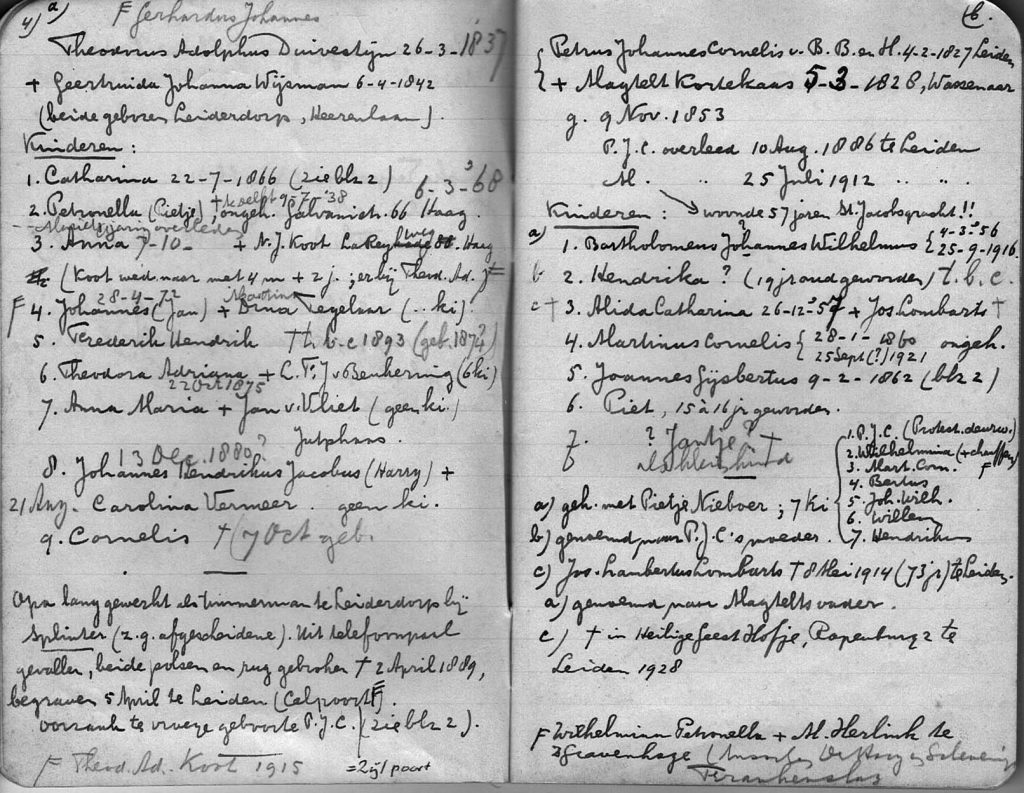 4) a)
F Gerhardus Johannes
Theodorus Adolphus Duivestijn 26-3-1837
+ Geertruida Johanna Wijsman 6-4-1842
(beide geboren Leiderdorp, Heerenlaan).
Kinderen:
1. Catharina 22-7-1866 (zie blz 2) 6-3-68
2. Petronella (Pietje), ongeh. Galvanistr. 66 Haag
3. Anna 7-10- + N.J. Koot La Reyweg Haag
(Koot wed. naar met 4 m + 2 j.; er bij Theod. Ad. F
28-4-72 Martina
F 4. Johannes (Jan) + Dina Tegelaar (.. ki).
5. Frederik Hendrik † t.b.c 1893 (geb. 1874?)
6. Theodora Adriana + L.F.J. v Beukering (6 ki)
22 Oct 1875
7. Anna Maria + Jan v. Vliet (geen ki.)
Jutphaas.
13 Dec. 1880?
8. Johannes Hendrikus Jacobus (Harry) +
21 Aug. Carolina Vermeer. geen ki.
9. Cornelis † (7 Oct geb.
Opa lang gewerkt als timmerman te Leiderdorp bij
Splinter (z.g. afgescheidene). Uit telefoonpaal
gevallen, beide polsen en rug gebroken † 2 April 1889,
begraven 5 April te Leiden.
oorzaak te vroege geboorte P.J.C. (zie blz 2).
F Theod. Ad. Koot 1915
= Zijlpoort
6.
Petrus Johannes Cornelis v. B. B. en H. 4-2-1827 Leiden
+ Magtelt Kortekaas 5-3-1828, Wassenaar
g. 9 Nov. 1853
P.J.C. overleed 10 Aug. 1886 te Leiden
M. " 25 Juli 1912 " "
woonde 57 jaren St. Jacobsgracht!!
Kinderen:
a) 1. Bartholomeus Johannes Wilhelmus { 4-3-56
25-9-1916
b 2. Hendrika? (19 jr oud geworden) t.b.c.
c † 3. Alida Catharina 26-12-57 + Jos Lombarts †
4. Martinus Cornelis { 28-1-1860 ongeh.
25 Sept (?) 1921
5. Joannes Gijsbertus 9-2-1862 (blz 2)
6. Piet, 15 à 16 jr geworden.
7. ? Jantje? †
als klein kind
1. P.J.C.
2. Wilhelmina
3. Mart. Corn. F
4. Bertus
5. Joh. Wilh.
6. Willem
7. Hendrikus
a) geh. met Pietje Nieboer; 7 ki
b) genoemd naar P.J.C.'s moeder.
c) Jos. Lambertus Lombarts † 8 Mei 1914 (73 jr) te Leiden.
a) genoemd naar Magtelts vader.
c) † in Heilige Geest Hofje, Rapenburg 2 te
Leiden 1928
F Wilhelmina Petronella + M. Herlink te
's Gravenhage